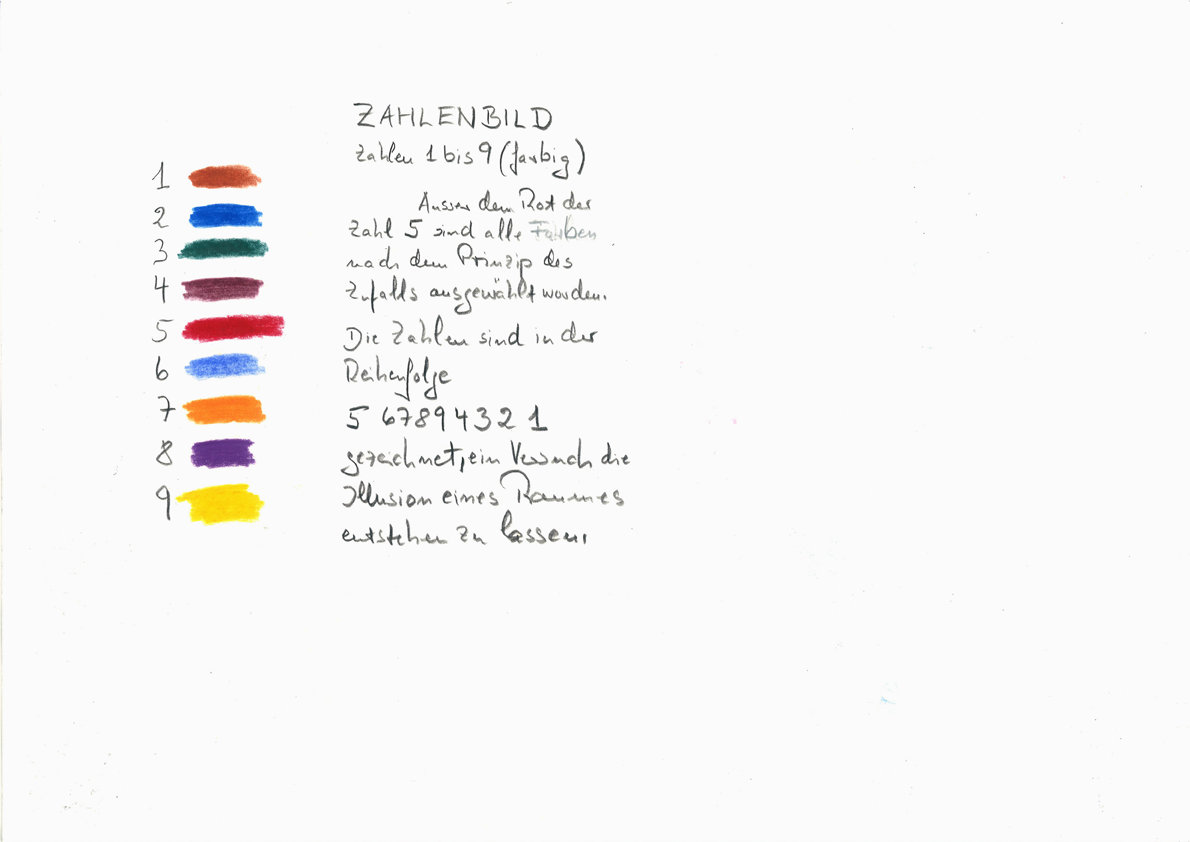 ZAHLENBILD
Zahlen 1 bis 9 (farbig)
1
2
3
4
5
6
7
8
9
Ausser dem Rot der
Zahl 5 sind alle Farben
nach dem Prinzip des
Zufalls ausgewählt worden.
Die Zahlen sind in der
Reihenfolge
5 6 7 8 9 4 3 2 1
gezeichnet, ein Versuch die
Illusion eines Raumes
entstehen zu lassen.